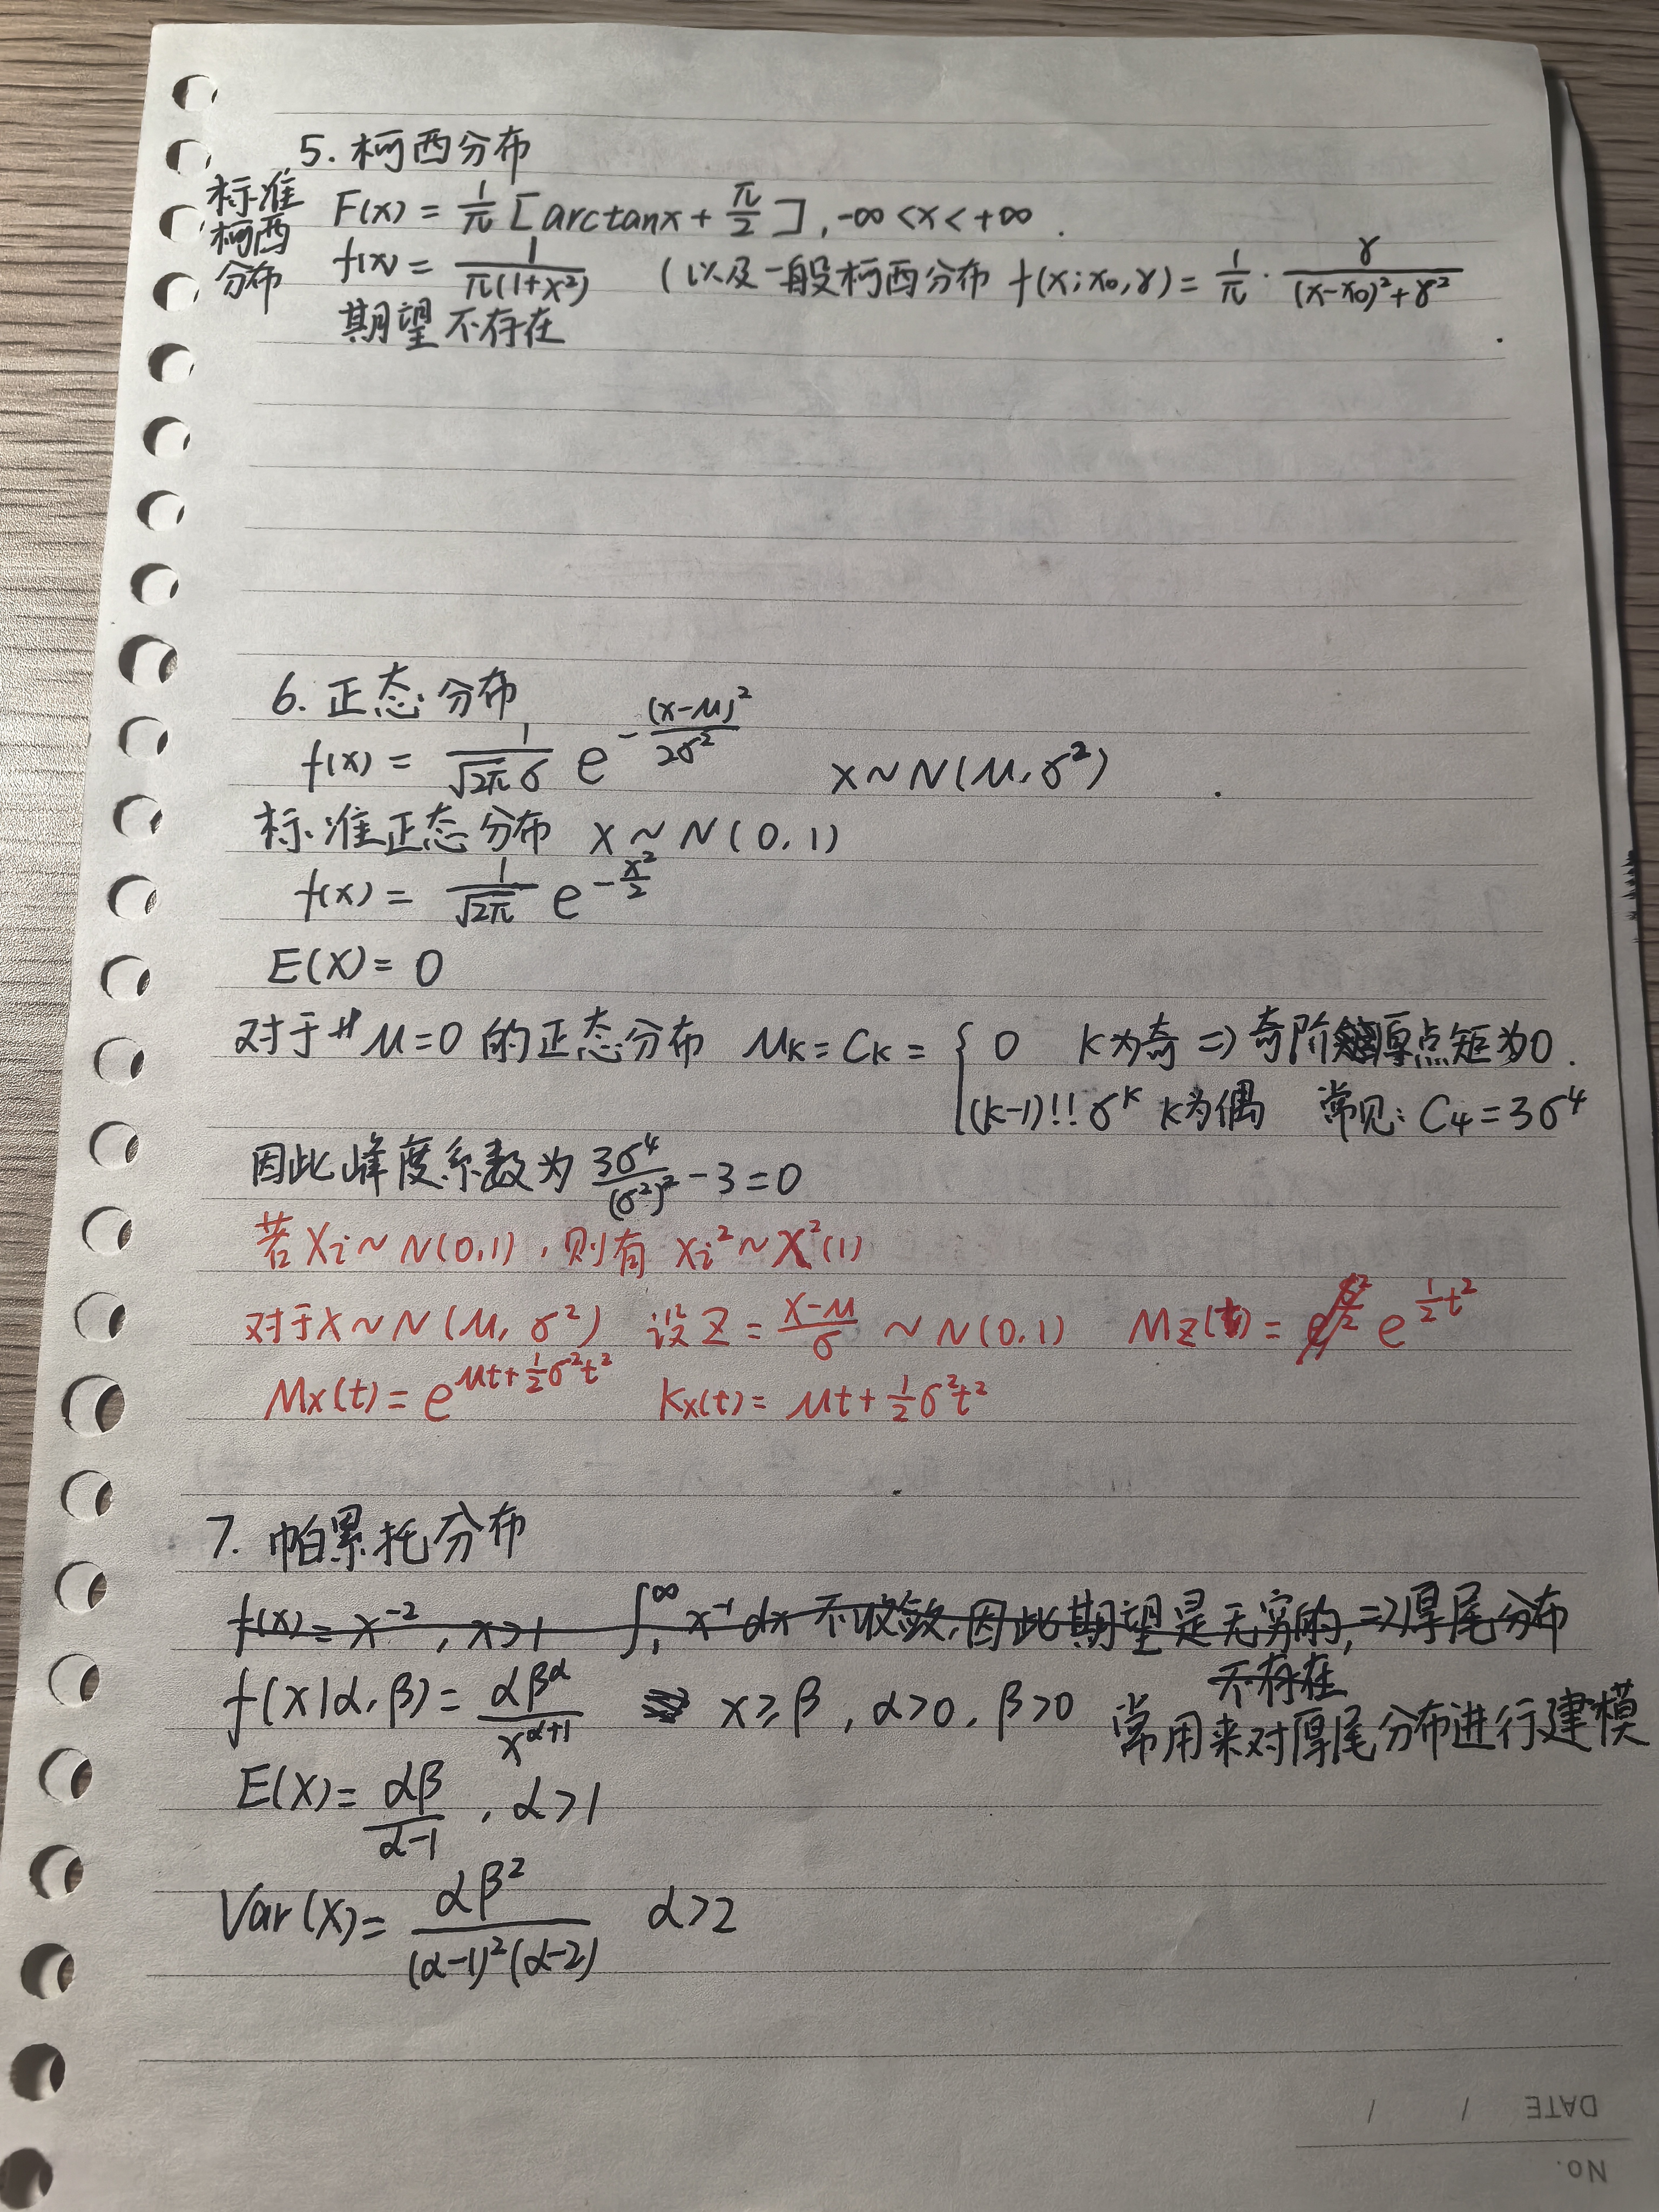 5. 柯西分布
标准柯西分布
F(x) = \frac{1}{π} [arctanx + \frac{π}{2}], -∞ < x < +∞
f(x) = \frac{1}{π(1+x²)} (以及一般柯西分布 f(x; x₀, γ) = \frac{1}{π} · \frac{γ}{(x-x₀)²+γ²}
期望不存在
6. 正态分布
f(x) = \frac{1}{\sqrt{2π}σ} e^{-\frac{(x-μ)²}{2σ²}} X~N(μ, σ²)
标准正态分布 X~N(0, 1)
f(x) = \frac{1}{\sqrt{2π}} e^{-\frac{x²}{2}}
E(X) = 0
对于 μ=0 的正态分布 μₖ = Cₖ = { 0 k为奇 => 奇阶原点矩为0.
(k-1)!! σᵏ k为偶 常见: C₄ = 3σ⁴
因此峰度系数为 \frac{3σ⁴}{(σ²)²} - 3 = 0
若 Xi ~ N(0,1), 则有 Xi² ~ χ²(1)
对于X~N(μ, σ²) 设 Z = \frac{X-μ}{σ} ~ N(0,1) Mz(t) = e^{\frac{1}{2}t²}
Mx(t) = e^{μt+\frac{1}{2}σ²t²} Kx(t) = μt + \frac{1}{2}σ²t²
7. 帕累托分布
f(x) = x⁻², x>1 ∫₁^∞ x⁻¹ dx 不收敛, 因此期望是无穷的, => 厚尾分布
不存在
f(x|α, β) = \frac{αβ^α}{x^{α+1}} x ≥ β, α>0, β>0 常用来对厚尾分布进行建模
E(X) = \frac{αβ}{α-1}, α>1
Var(X) = \frac{αβ²}{(α-1)²(α-2)} α>2
DATE / /
No.